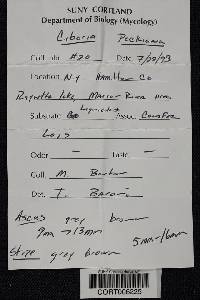 SUNY CORTLAND
Department of Biology (Mycology)
Ciboria Peckiana
Coll. nbr. #20 Date 7/22/93
Location N.Y. Hamilton Co
Raquette Lake, Marion River area
Substrate Assoc. Conifer
Logs
Odor — Taste —
Coll. M.
Det. T. Baroni
Ascus grey brown
9mm > 13mm
5mm-16mm
Stipe grey brown
CORT006225